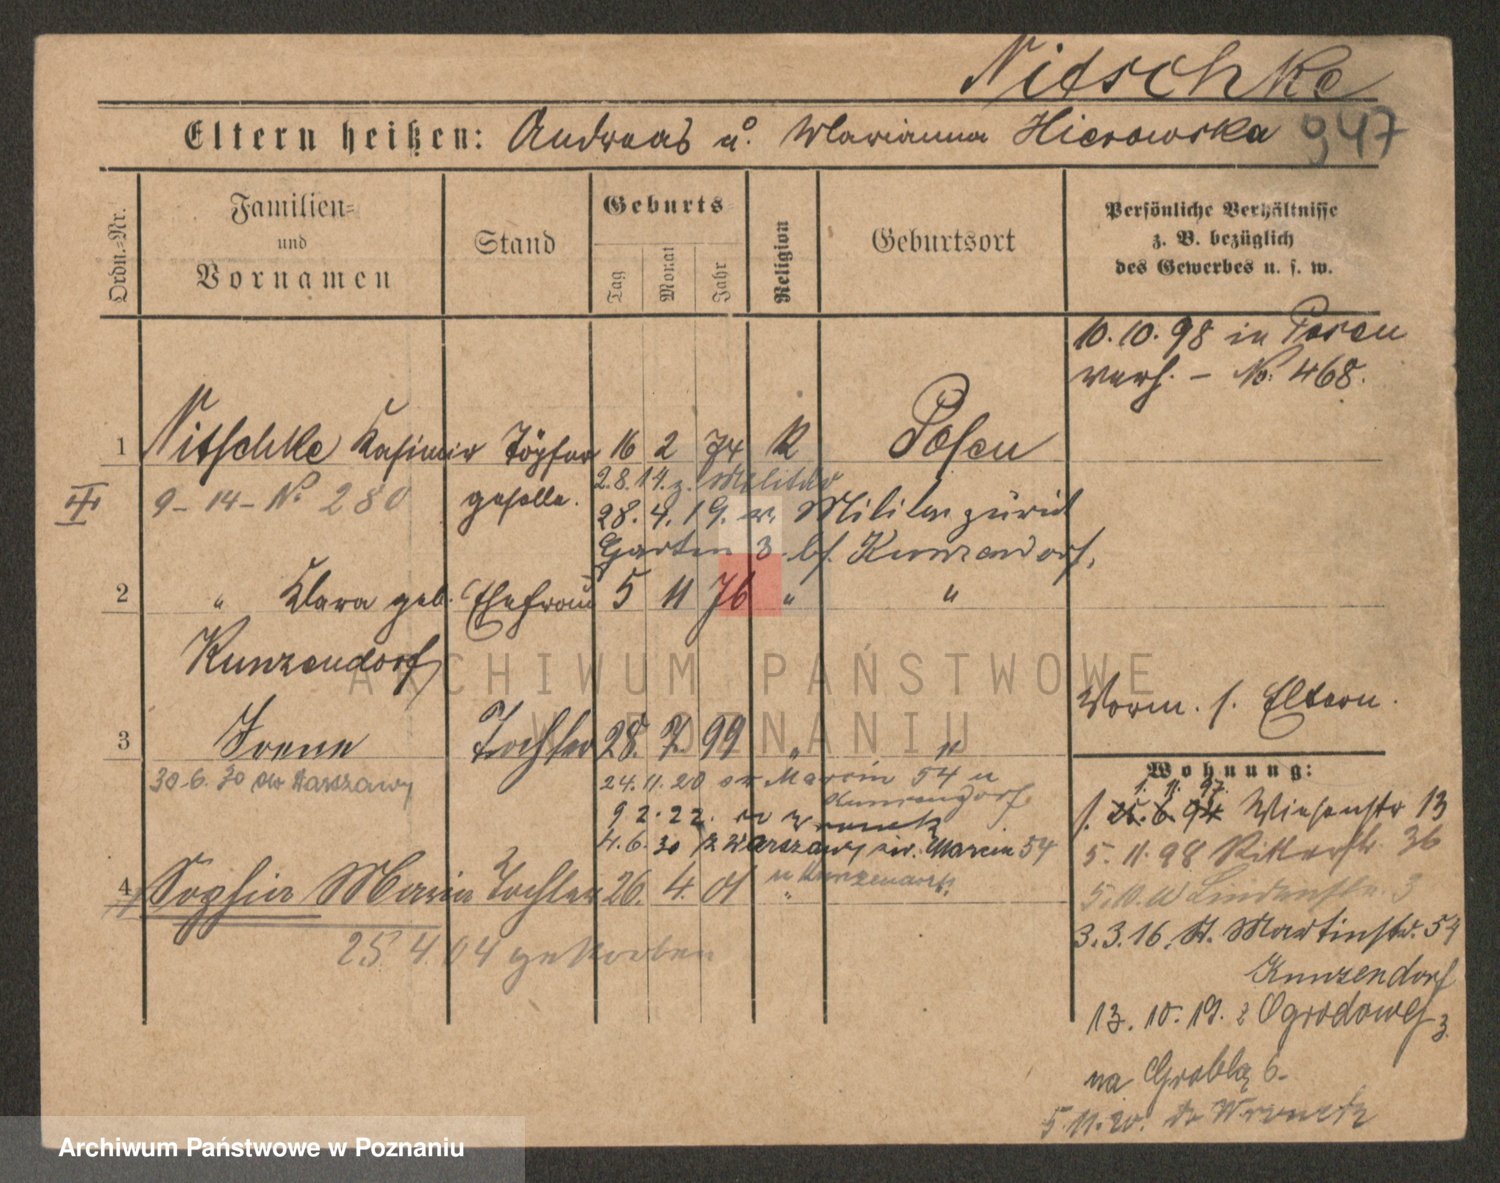 Nitschke
Eltern heißen: Andreas u. Marianna Hierowska 947
Ordn.-Nr.
Familien- und Vornamen
Stand
Geburts
Tag Monat Jahr
Religion
Geburtsort
Persönliche Verhältnisse
z. B. bezüglich
des Gewerbes u. s. w.
10.10.98 in Posen
verh. - No: 468.
1 Nitschke Kasimir Töpfer 16 2 74 K Posen
9-14-No 280 geselle.
2.8.14. z. Militär
28.4.19. v. Militär zurück
Garten 3 bf. Kunzendorf,
2 " Clara geb. Ehefrau 5 11 76 " "
Kunzendorf
Vorm. s. Eltern.
3 Irene Tochter 28. 7. 99 " "
30.6.30 do Warszawy
24.11.20 Marcin 54 u
Kunzendorf
9 2.22. Wronek
4.6.30 z Warszawy św. Marcin 54
u Kunzendorf
4 Sophia Maria Tochter 26. 4. 01 "
25 4.04 gestorben
Wohnung:
1. 11. 97.
Wiesenstr 13
5. 11.98 Ritterstr. 36
Lindenstr. 3
3.3.16. St. Martinstr. 54
Kunzendorf
13.10.19. z Ogrodowej 3.
na Groblą 6.
5.11.20. do Wronek
Archiwum Państwowe
w Poznaniu
Archiwum Państwowe w Poznaniu